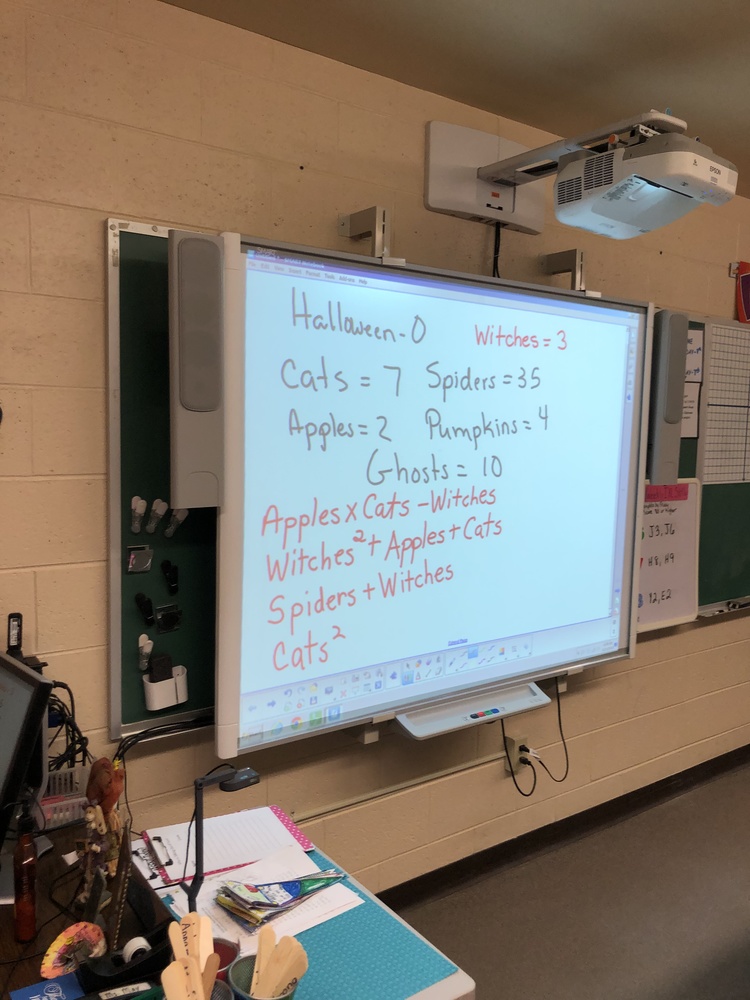 Halloween-O Witches = 3
Cats = 7 Spiders = 35
Apples = 2 Pumpkins = 4
Ghosts = 10
Apples x Cats - Witches
Witches² + Apples + Cats
Spiders + Witches
Cats²
EPSON
J3, J6
H8, H9